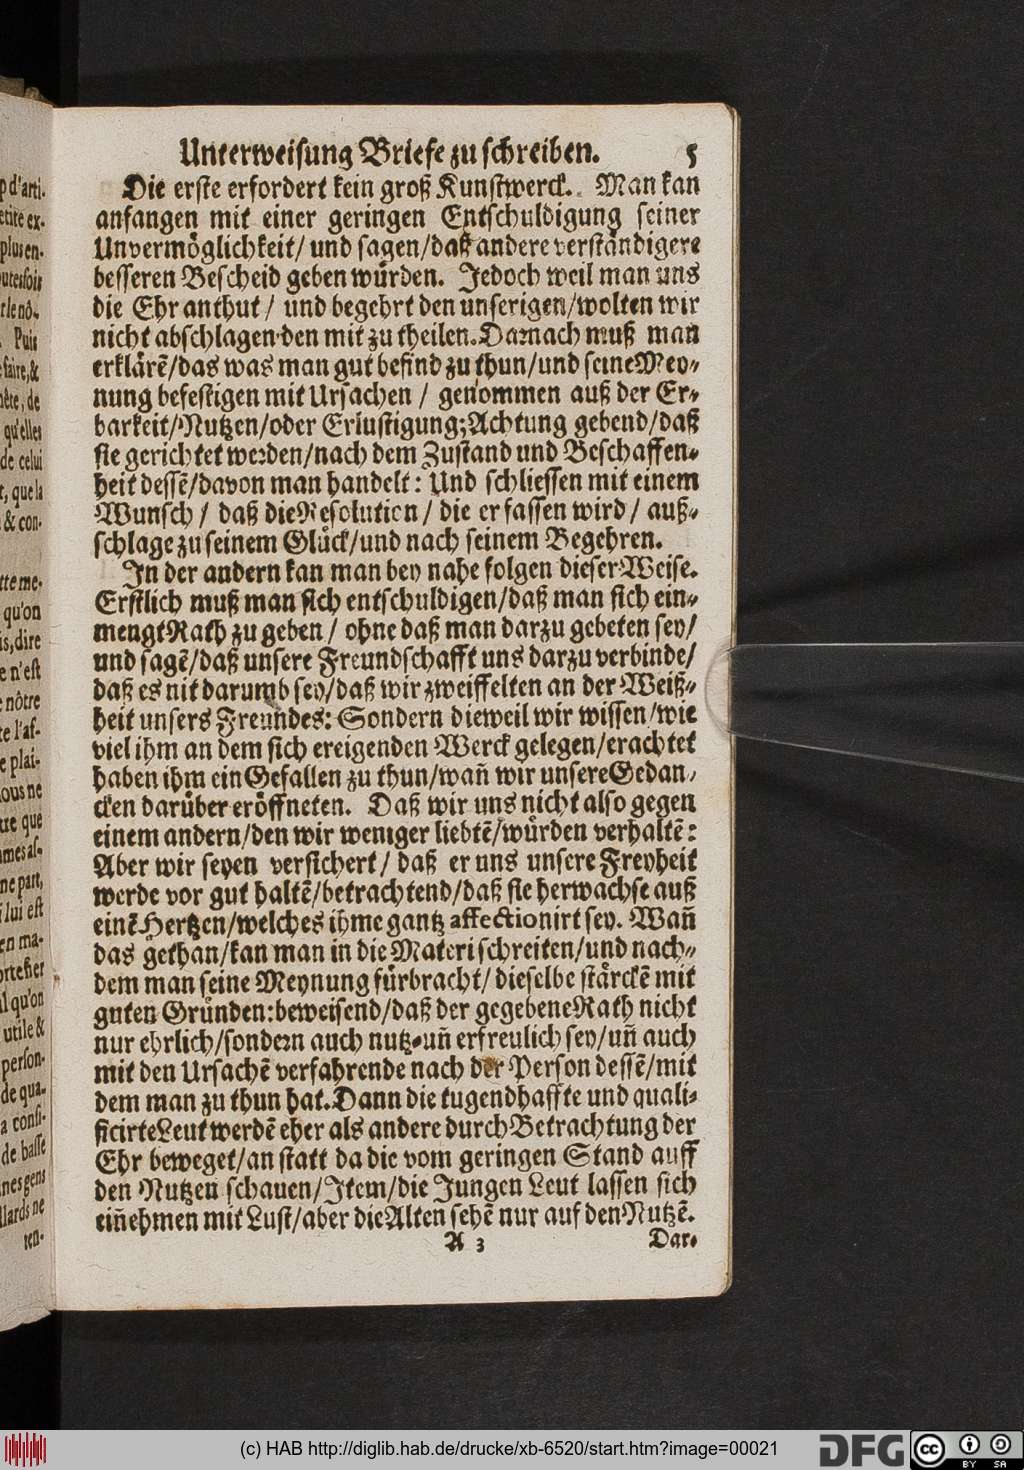 p d'arti-
etite ex-
plus en-
outesfois
r le nô-
Puis
faire, &
nête, de
qu'elles
de celui
t, que la
& con-
tte me-
qu'on
is, dire
e n'est
nôtre
te l'af-
e plai-
ous ne
ue que
mes as-
ne part,
i lui est
en ma-
ortefier
il qu'on
utile &
person-
de qua-
a consi-
de basse
nes gens
llards ne
ten-
Unterweisung Briefe zu schreiben. 5
Die erste erfordert kein groß Kunstwerck. Man kan
anfangen mit einer geringen Entschuldigung seiner
Unvermöglichkeit/ und sagen/daß andere verständigere
besseren Bescheid geben würden. Jedoch weil man uns
die Ehr anthut / und begehrt den unserigen/wolten wir
nicht abschlagen den mit zu theilen. Darnach muß man
erklärẽ/das was man gut befind zu thun/und seine Mey-
nung befestigen mit Ursachen / genommen auß der Er-
barkeit/Nutzen/oder Erlustigung; Achtung gebend/daß
sie gerichtet werden/nach dem Zustand und Beschaffen-
heit dessẽ/davon man handelt: Und schliessen mit einem
Wunsch / daß die Resolution / die er fassen wird / auß-
schlage zu seinem Glück/und nach seinem Begehren.
In der andern kan man bey nahe folgen dieser Weise.
Erstlich muß man sich entschuldigen/daß man sich ein-
mengt Rath zu geben / ohne daß man darzu gebeten sey/
und sagẽ/daß unsere Freundschafft uns darzu verbinde/
daß es nit darumb sey/daß wir zweiffelten an der Weiß-
heit unsers Freundes: Sondern dieweil wir wissen/wie
viel ihm an dem sich ereigenden Werck gelegen/erachtet
haben ihm ein Gefallen zu thun/wañ wir unsere Gedan-
cken darüber eröffneten. Daß wir uns nicht also gegen
einem andern/den wir weniger liebtẽ/würden verhaltẽ:
Aber wir seyen versichert/ daß er uns unsere Freyheit
werde vor gut haltẽ/betrachtend/daß sie herwachse auß
einẽ Hertzen/welches ihme gantz affectionirt sey. Wañ
das gethan/kan man in die Materi schreiten/und nach-
dem man seine Meynung fürbracht/ dieselbe stärckẽ mit
guten Gründen: beweisend/daß der gegebene Rath nicht
nur ehrlich/sondern auch nutz-uñ erfreulich sey/uñ auch
mit den Ursachẽ verfahrende nach der Person dessẽ/mit
dem man zu thun hat. Dann die tugendhaffte und quali-
ficirte Leut werdẽ eher als andere durch Betrachtung der
Ehr beweget/an statt da die vom geringen Stand auff
den Nutzen schauen/Item/die Jungen Leut lassen sich
eiñehmen mit Lust/aber die Alten sehẽ nur auf den Nutzẽ.
A 3 Dar-
(c) HAB http://diglib.hab.de/drucke/xb-6520/start.htm?image=00021
DFG
cc BY SA